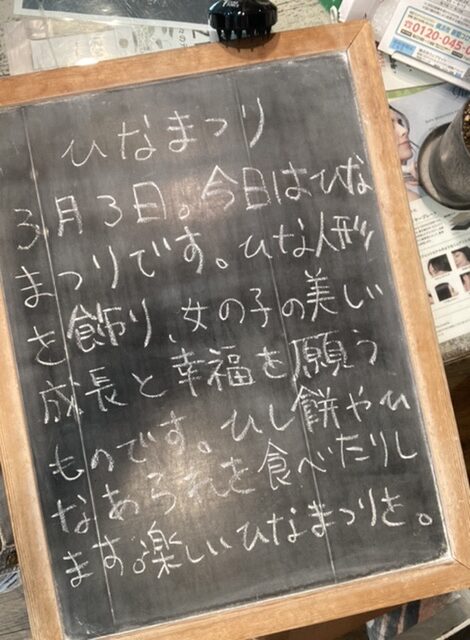 0120-045
ひなまつり
3月3日。今日はひな
まつりです。ひな人形
を飾り、女の子の美しい
成長と幸福を願う
ものです。ひし餅やひ
なあられを食べたりし
ます。楽しいひなまつりを。